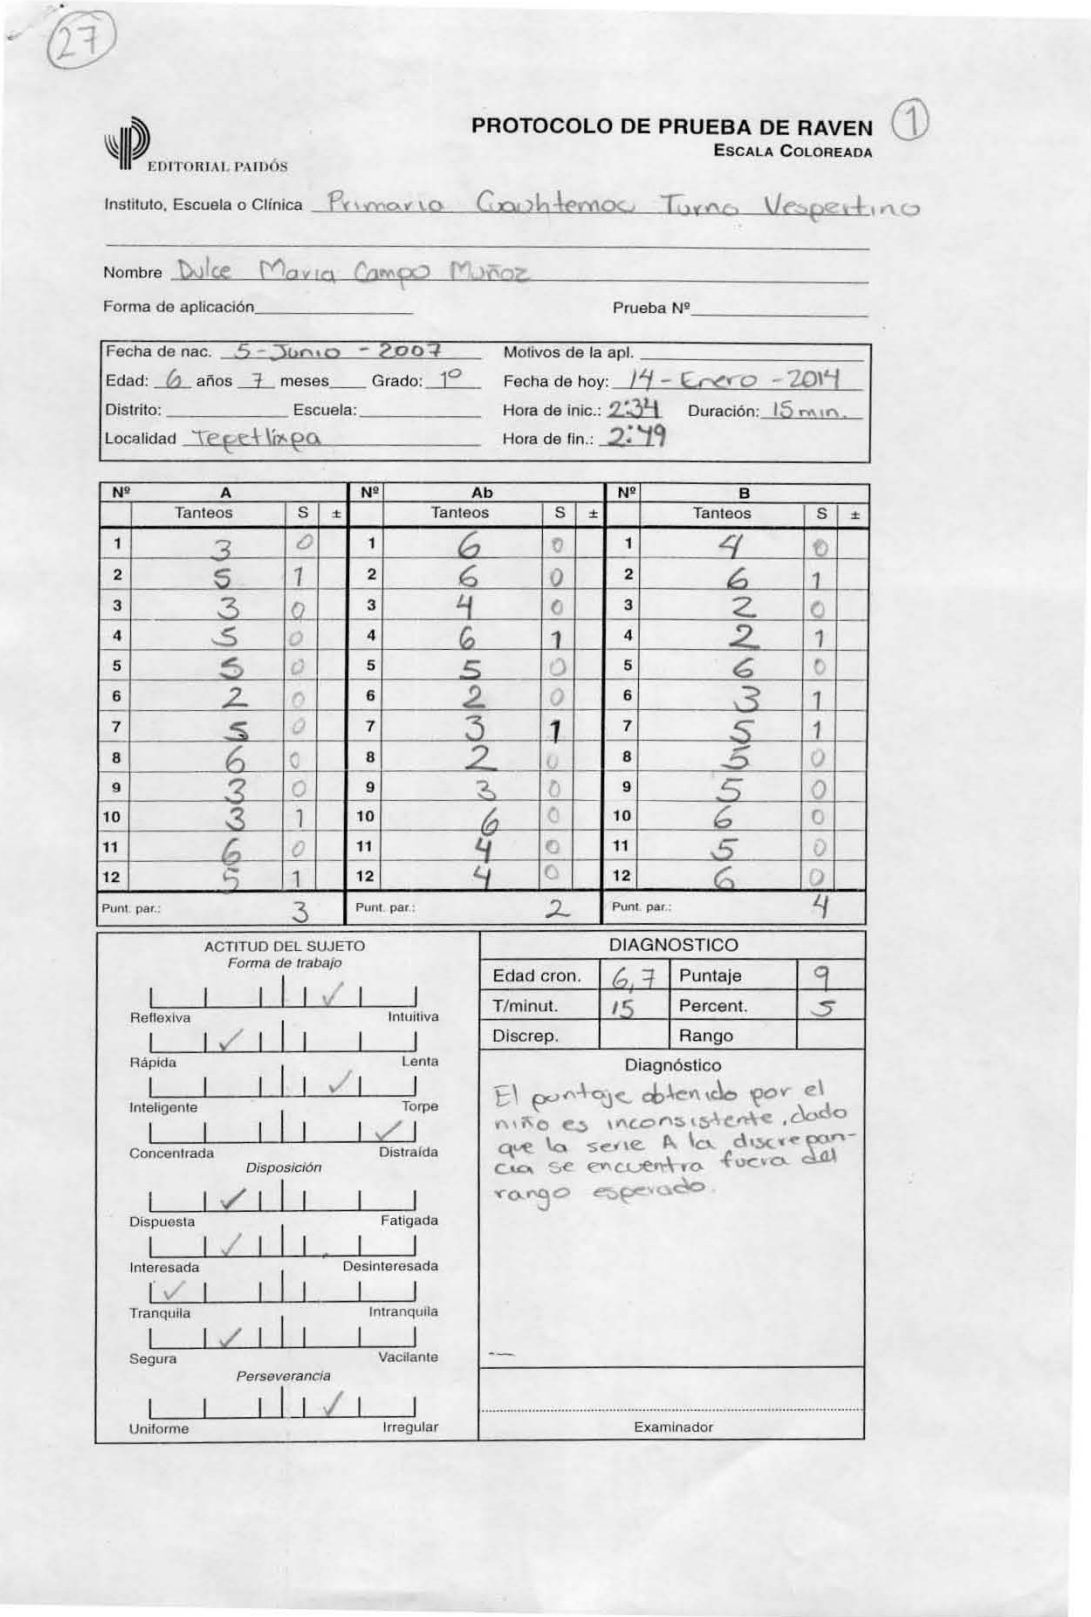 27
PROTOCOLO DE PRUEBA DE RAVEN 1
ESCALA COLOREADA
EDITORIAL PAIDÓS
Instituto, Escuela o Clínica Primaria Cuauhtemoc Turno Vespertino
Nombre Dulce Maria Campo Muñoz
Forma de aplicación Prueba Nº
Fecha de nac. 5-Junio-2007 Motivos de la apl.
Edad: 6 años 7 meses Grado: 1º Fecha de hoy: 14-Enero-2014
Distrito: Escuela: Hora de inic.: 2:34 Duración: 15 min.
Localidad Tepetlixpa Hora de fin.: 2:49
Nº A Nº Ab Nº B
Tanteos S ± Tanteos S ± Tanteos S ±
1 3 0 1 6 0 1 4 0
2 5 1 2 6 0 2 6 1
3 3 0 3 4 0 3 2 0
4 5 0 4 6 1 4 2 1
5 5 0 5 5 0 5 6 0
6 2 0 6 2 0 6 3 1
7 5 0 7 3 1 7 5 1
8 6 0 8 2 0 8 5 0
9 3 0 9 3 0 9 5 0
10 3 1 10 6 0 10 6 0
11 6 0 11 4 0 11 5 0
12 5 1 12 4 0 12 6 0
Punt. par.: 3 Punt. par.: 2 Punt. par.: 4
ACTITUD DEL SUJETO
Forma de trabajo
Reflexiva Intuitiva
Rápida Lenta
Inteligente Torpe
Concentrada Distraída
Disposición
Dispuesta Fatigada
Interesada Desinteresada
Tranquila Intranquila
Segura Vacilante
Perseverancia
Uniforme Irregular
DIAGNOSTICO
Edad cron. 6,7 Puntaje 9
T/minut. 15 Percent. 5
Discrep. Rango
Diagnóstico
El puntaje obtenido por el
niño es inconsistente, dado
que la serie A la discrepan-
cia se encuentra fuera del
rango esperado.
Examinador